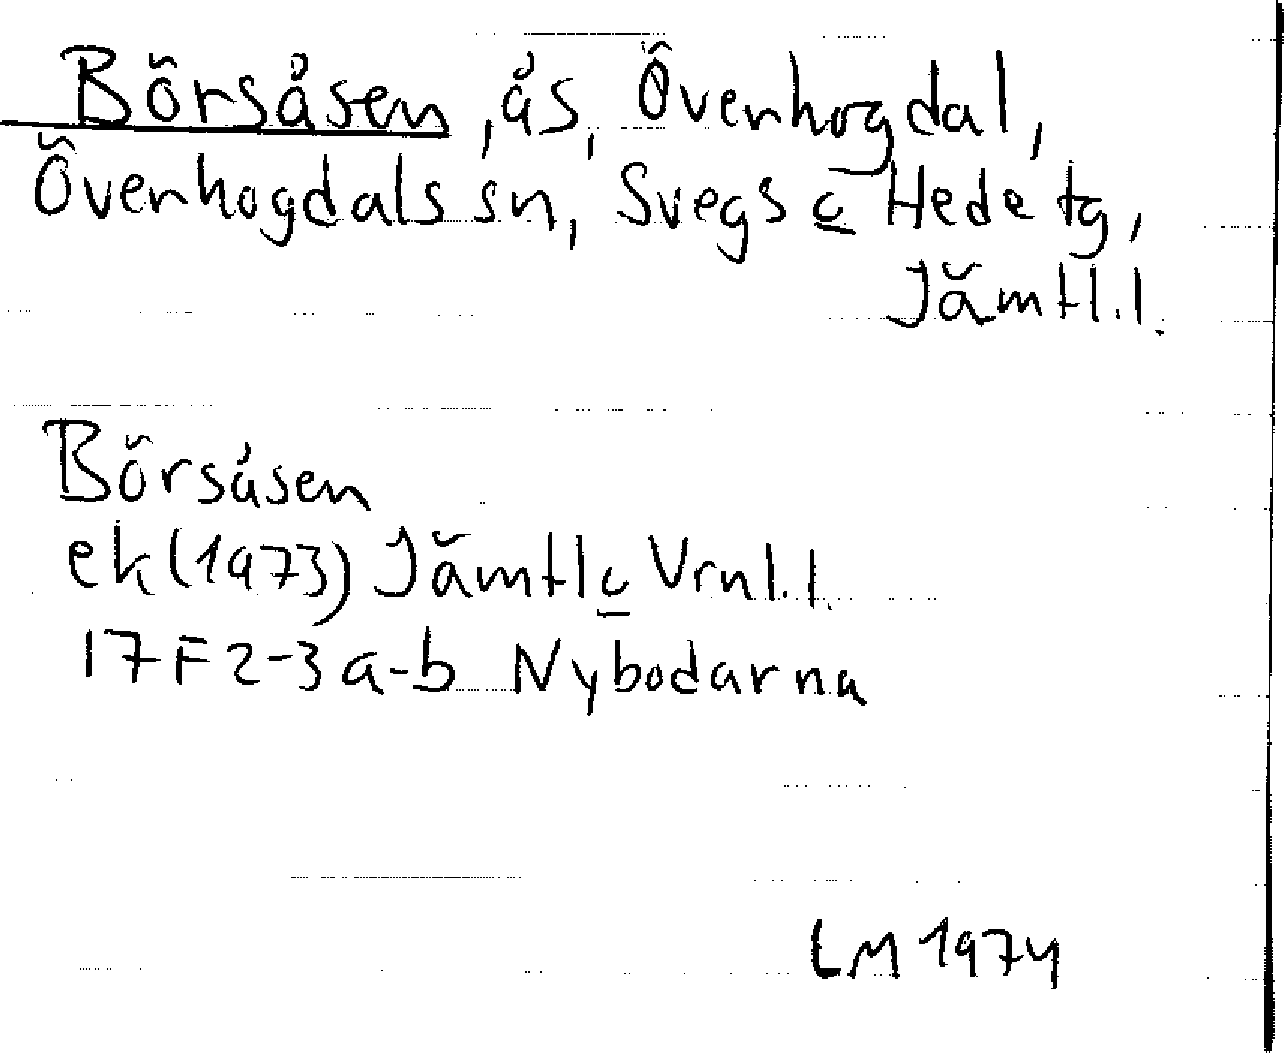 Börsåsen, ås, Övenhogdal,
Övenhogdals sn, Svegs c Hede tg,
Jämtl.l.
Börsåsen
ek (1973) Jämtl c Vrnl.l.
17F 2-3 a-b Nybodarna
LM 1974